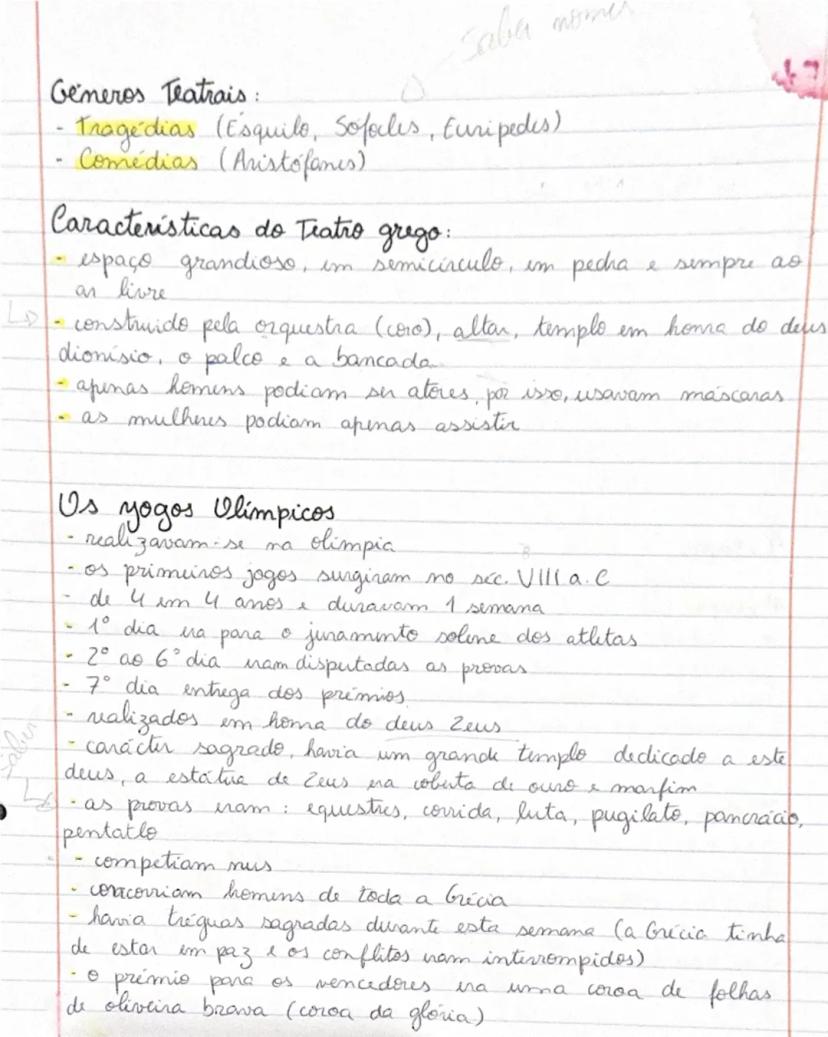 Saber nomes
Géneros Teatrais:
- Tragédias (Ésquilo, Sófocles, Eurípedes)
- Comédias (Aristófanes)
Características do Teatro grego:
- espaço grandioso, em semicírculo, em pedra e sempre ao
ar livre
- construido pela orquestra (coro), altar, templo em honra do deus
dionísio, o palco e a bancada
- apenas homens podiam ser atores, por isso, usavam máscaras
- as mulheres podiam apenas assistir
Os yogos Olímpicos
- realizavam-se na olimpia
- os primeiros jogos surgiram no séc. VIII a.C
- de 4 em 4 anos e duravam 1 semana
- 1º dia era para o juramento solene dos atletas
- 2º ao 6º dia eram disputadas as provas
- 7º dia entrega dos prémios
- realizados em honra do deus Zeus
- carácter sagrado, havia um grande templo dedicado a este
deus, a estátua de Zeus era coberta de ouro e marfim
saber
- as provas eram: equestres, corrida, luta, pugilato, pancrácio,
pentatlo
- competiam nus
- concorriam homens de toda a Grécia
- havia tréguas sagradas durante esta semana (a Grécia tinha
de estar em paz e os conflitos eram interrompidos)
- o prémio para os vencedores era uma coroa de folhas
de oliveira brava (coroa da glória)